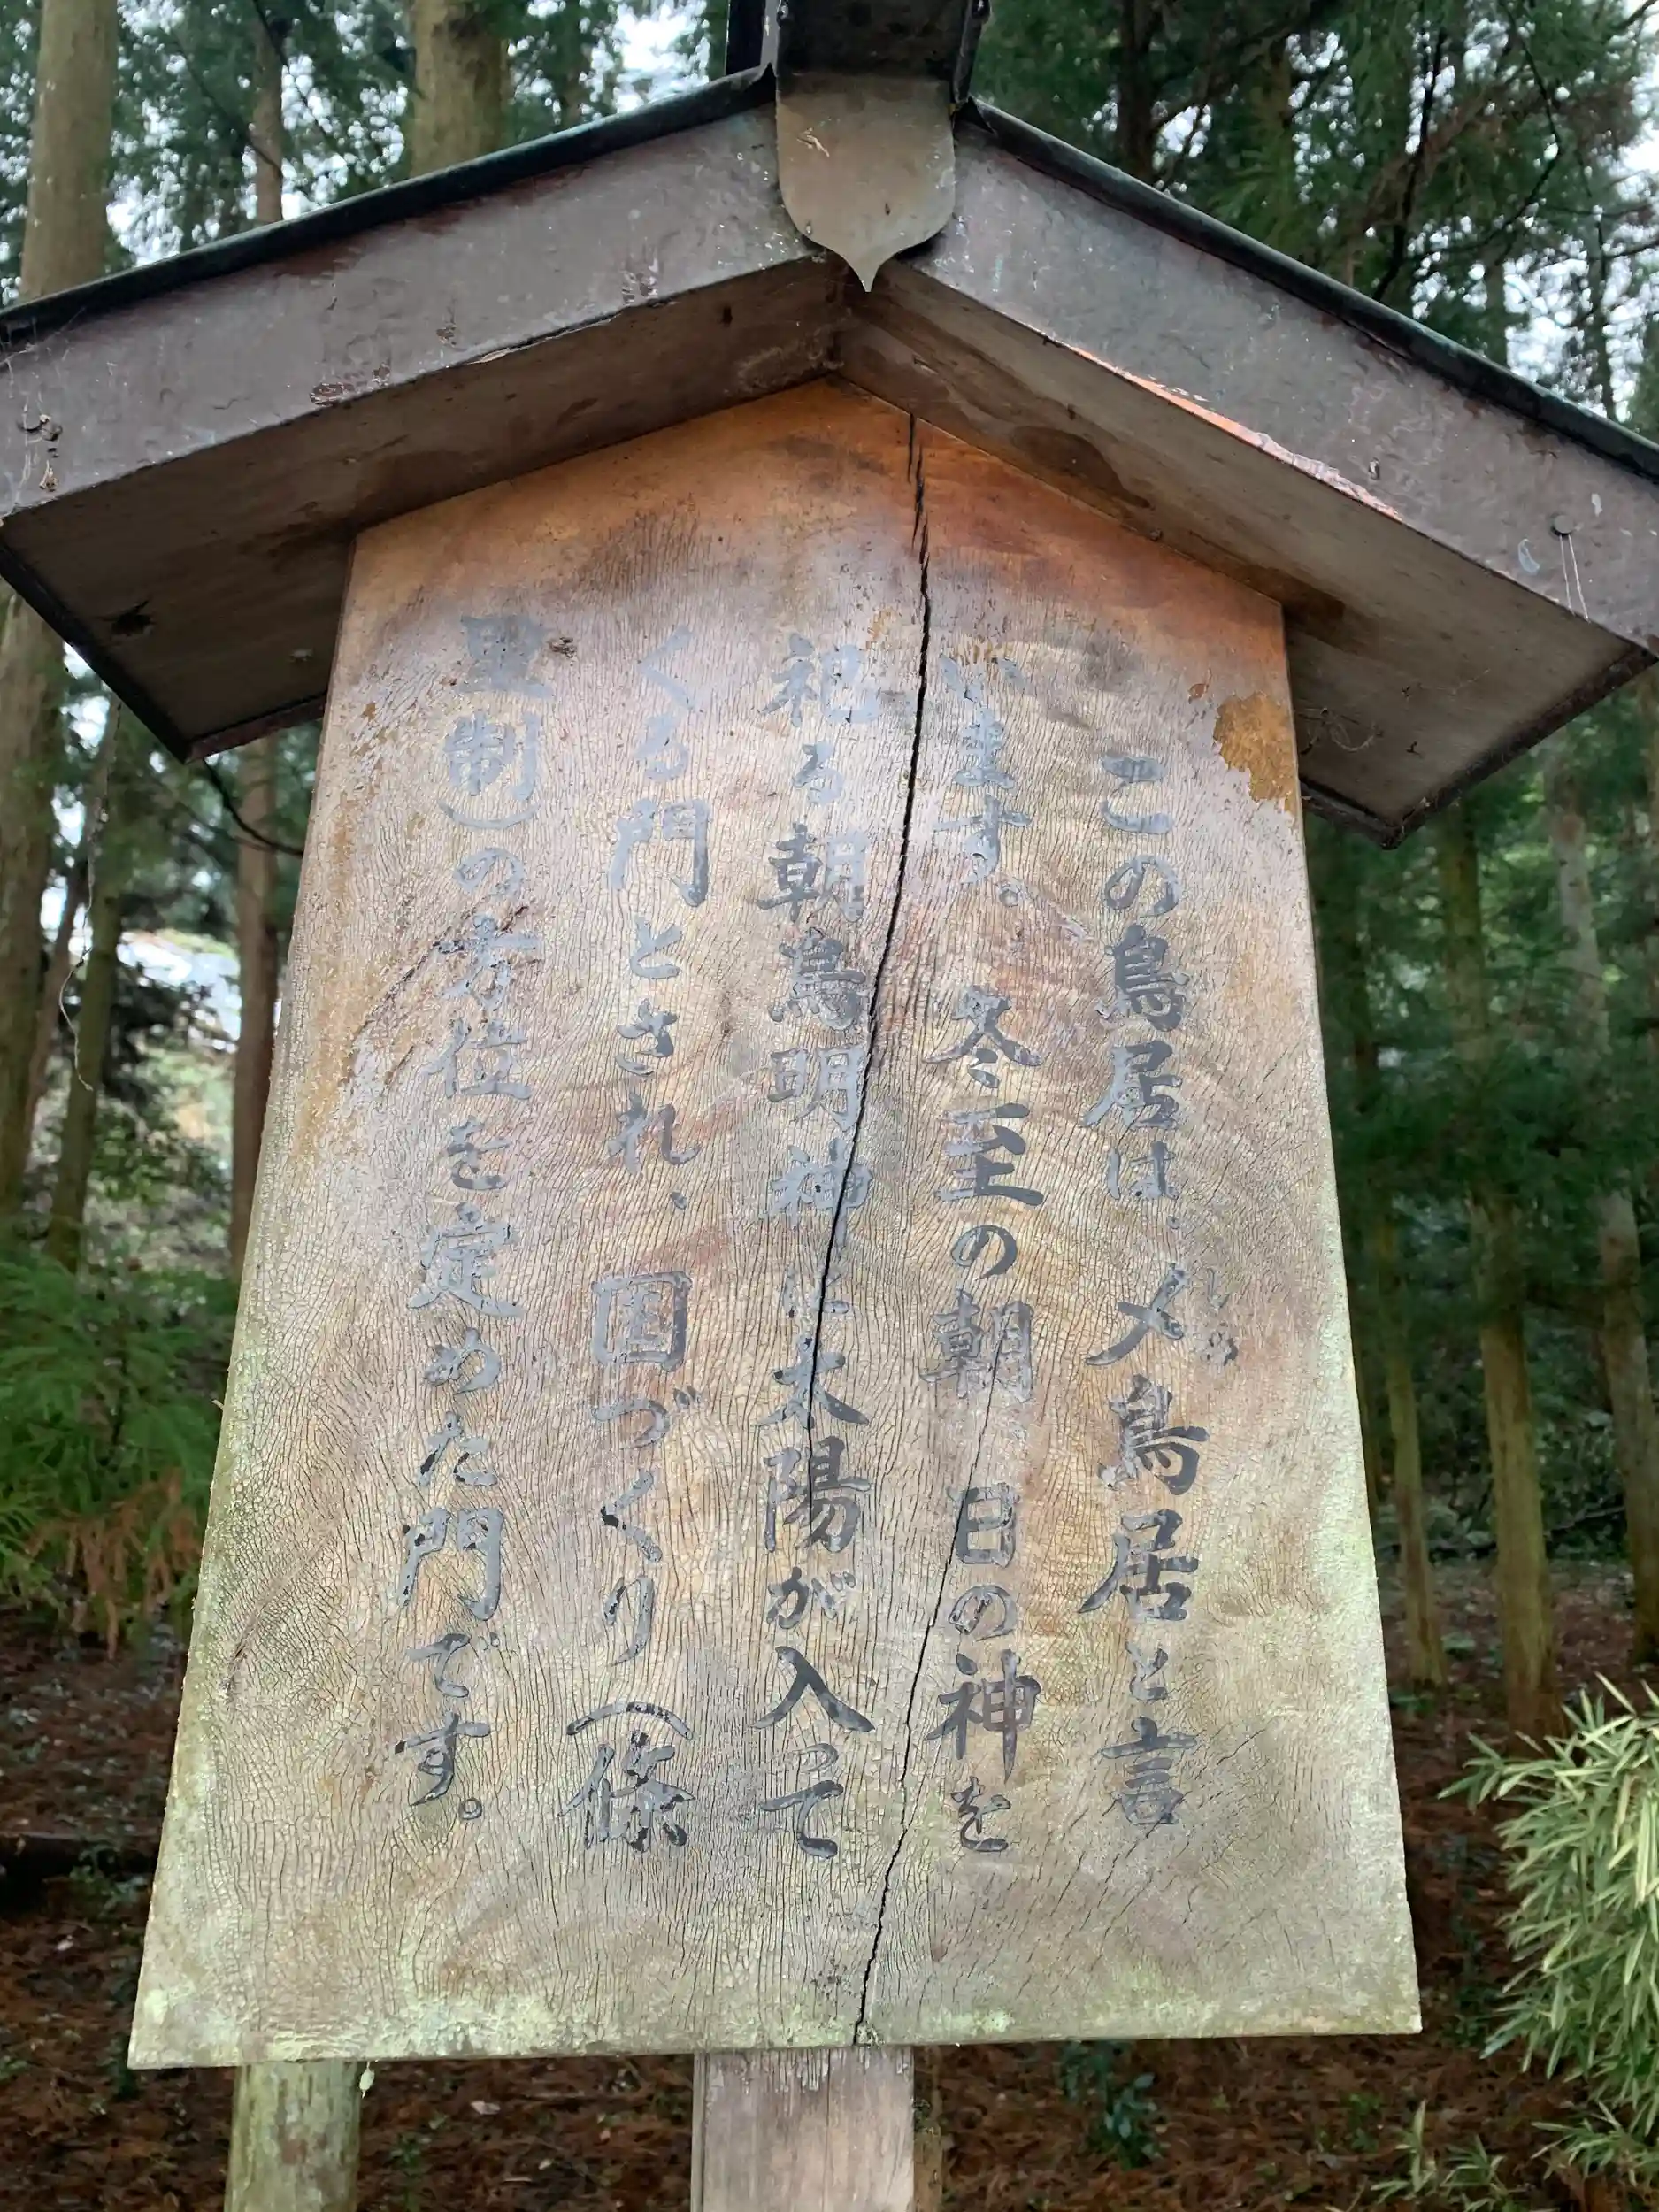 この鳥居は、〆鳥居と言
しめ
います。冬至の朝 日の神を
祀る朝鳥明神に太陽が入って
くる門とされ、国づくり(條
里制)の方位を定めた門です。